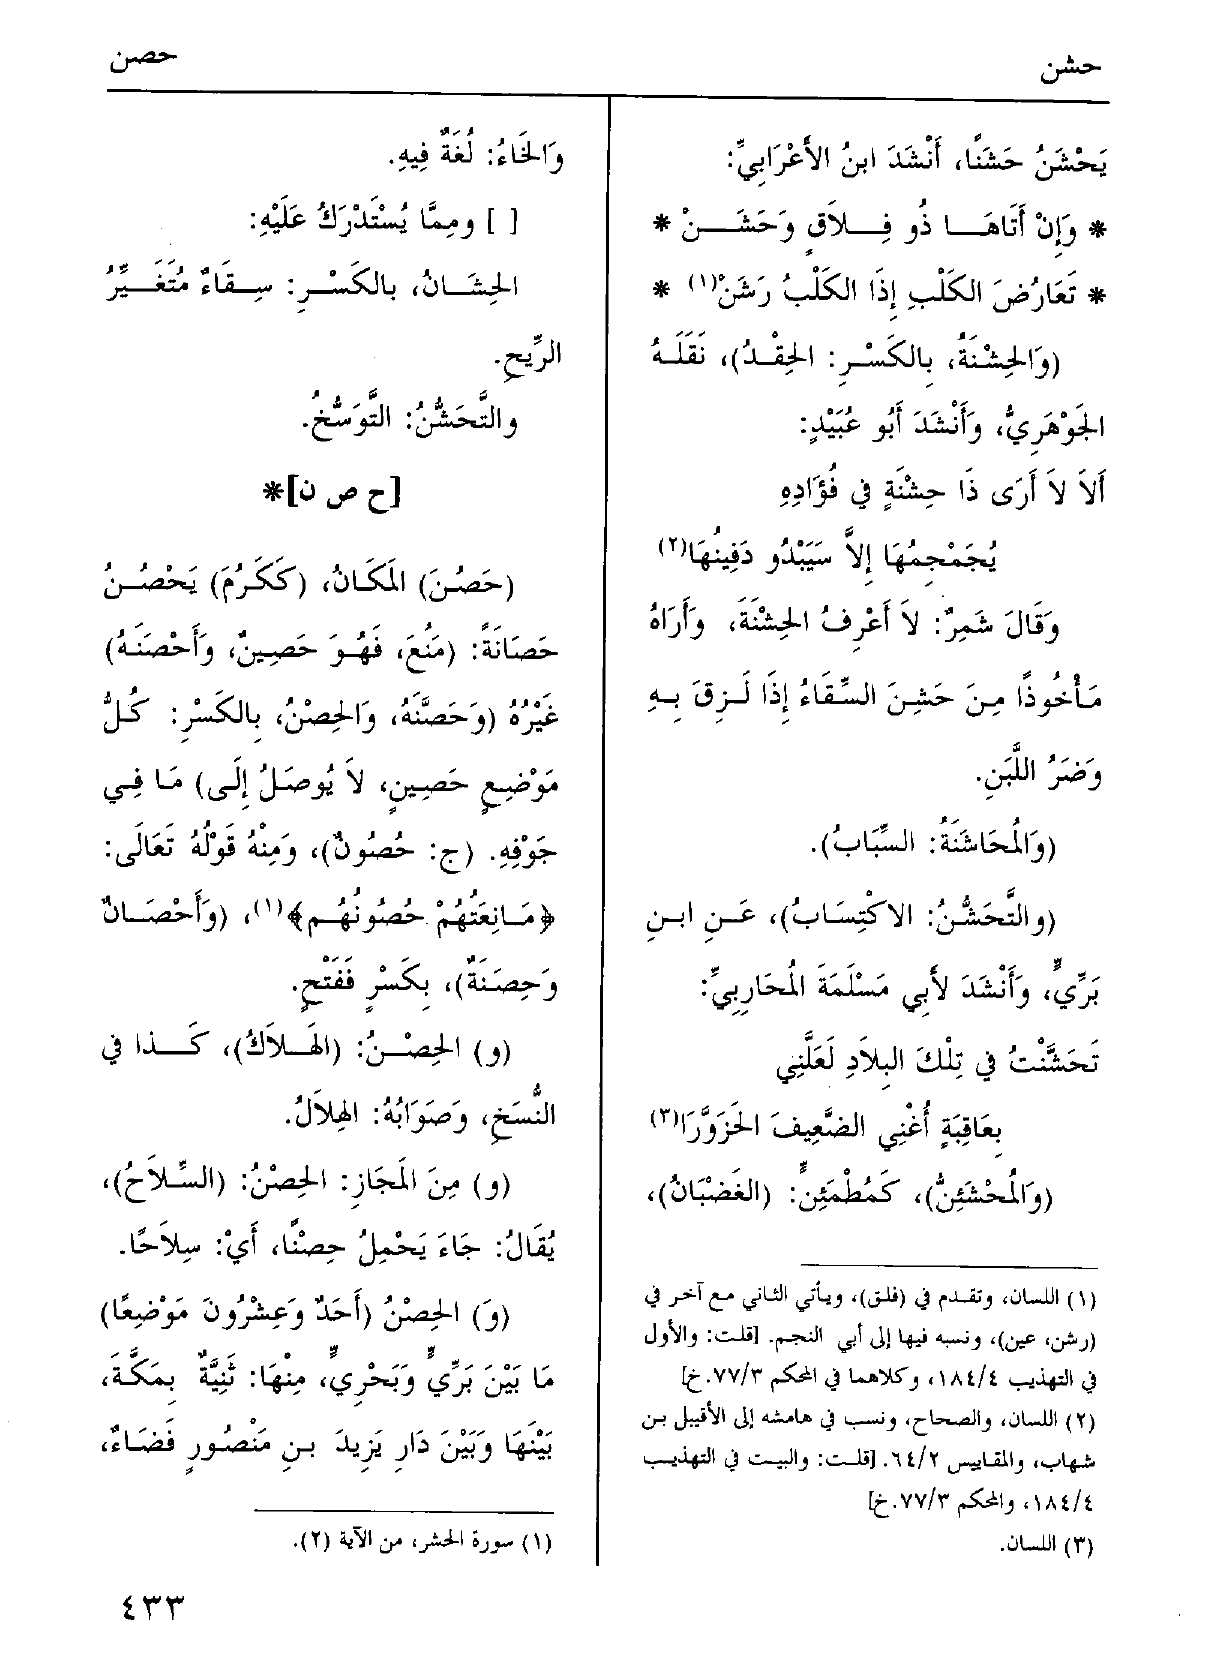 حشن
حصن
يَحْشَنُ حَشَنًا، أَنْشَدَ ابنُ الأَعْرَابِيِّ:
* وَإِنْ أَتَاهَا ذُو فِلَاقٍ وَحَشَنْ *
* تَعَارُضَ الكَلْبِ إِذَا الكَلْبُ رَشَنْ(١) *
(وَالحِشْنَةُ، بِالكَسْرِ: الحِقْدُ)، نَقَلَهُ
الجَوْهَرِيُّ، وَأَنْشَدَ أَبُو عُبَيْدٍ:
أَلاَ لاَ أَرَى ذَا حِشْنَةٍ في فُؤَادِهِ
يُجَمْجِمُهَا إِلاَّ سَيَبْدُو دَفِينُهَا(٢)
وَقَالَ شَمِرٌ: لاَ أَعْرِفُ الحِشْنَةَ، وَأَرَاهُ
مَأْخُوذًا مِنَ حَشِنَ السِّقَاءُ إِذَا لَزِقَ بِهِ
وَضَرُ اللَّبَنِ.
(وَالمُحَاشَنَةُ: السِّبَابُ).
(والتَّحَشُّنُ: الاكْتِسَابُ)، عَنِ ابنِ
بَرِّيٍّ، وَأَنْشَدَ لأَبِي مَسْلَمَةَ المُحَارِبِيِّ:
تَحَشَّنْتُ في تِلْكَ البِلاَدِ لَعَلَّنِي
بِعَاقِبَةٍ أُغْنِي الضَّعِيفَ الحَزَوَّرَا(٣)
(وَالمُحْشَئِنُّ)، كَمُطْمَئِنٍّ: (الغَضْبَانُ)،
(١) اللسان، وتقدم في (فلق)، ويأتي الثاني مع آخر في
(رشن، عين)، ونسبه فيها إلى أبي النجم. [قلت: والأول
في التهذيب ١٨٤/٤، وكلاهما في المحكم ٧٧/٣.خ]
(٢) اللسان، والصحاح، ونسب في هامشه إلى الأقيبل بن
شهاب، والمقاييس ٦٤/٢. [قلت: والبيت في التهذيب
١٨٤/٤، والمحكم ٧٧/٣.خ]
(٣) اللسان.
وَالخَاءُ: لُغَةٌ فِيهِ.
[ ] ومِمَّا يُسْتَدْرَكُ عَلَيْهِ:
الحِشَانُ، بالكَسْرِ: سِقَاءٌ مُتَغَيِّرُ
الرِّيحِ.
والتَّحَشُّنُ: التَّوَسُّخُ.
[ح ص ن]*
(حَصُنَ) المَكَانُ، (كَكَرُمَ) يَحْصُنُ
حَصَانَةً: (مَنُعَ، فَهُوَ حَصِينٌ، وَأَحْصَنَهُ)
غَيْرُهُ (وَحَصَّنَهُ، وَالحِصْنُ، بِالكَسْرِ: كُلُّ
مَوْضِعٍ حَصِينٍ، لاَ يُوصَلُ إِلَى) مَا فِي
جَوْفِهِ. (ج: حُصُونٌ)، وَمِنْهُ قَوْلُهُ تَعَالَى:
﴿مَانِعَتُهُمْ حُصُونُهُم﴾(١)، (وَأَحْصَانٌ
وَحِصَنَةٌ)، بِكَسْرٍ فَفَتْحٍ.
(و) الحِصْنُ: (الهَلاَكُ)، كَذا في
النُّسَخِ، وَصَوَابُهُ: الهِلاَلُ.
(و) مِنَ المَجَازِ: الحِصْنُ: (السِّلاَحُ)،
يُقَالُ: جَاءَ يَحْمِلُ حِصْنًا، أَيْ: سِلاَحًا.
(وَ) الحِصْنُ (أَحَدٌ وَعِشْرُونَ مَوْضِعًا)
مَا بَيْنَ بَرِّيٍّ وَبَحْرِيٍّ، مِنْهَا: ثَنِيَّةٌ بِمَكَّةَ،
بَيْنَهَا وَبَيْنَ دَارِ يَزِيدَ بنِ مَنْصُورٍ فَضَاءٌ،
(١) سورة الحشر، من الآية (٢).
٤٣٣